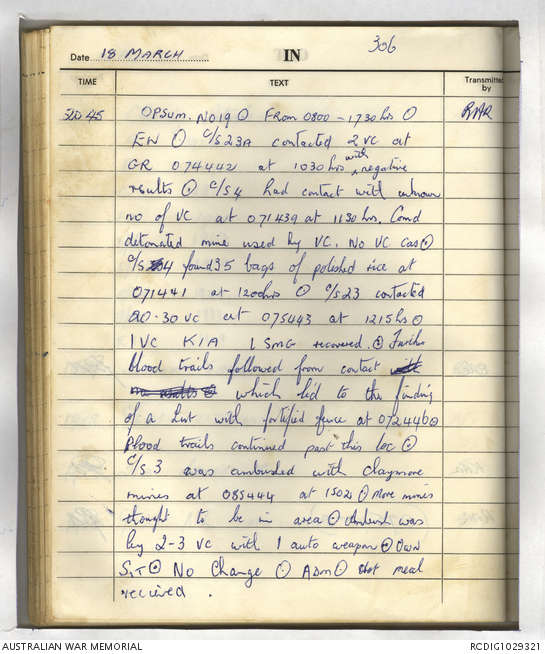 306
Date 18 MARCH IN
TIME TEXT Transmitted by
2045 OPSUM. NO19 ⊙ FROM 0800 - 1730 hrs ⊙ RAR
EN ⊙ C/S23A contacted 2 VC at
GR 074442 at 1030 hrs with negative
results ⊙ C/S 4 had contact with unknown
no of VC at 071439 at 1130 hrs. Comd
detonated mine used by VC. No VC cas ⊙
C/S 4 found 35 bags of polished rice at
071441 at 1200hrs ⊙ C/S 23 contacted
20-30 VC at 075443 at 1215 hrs ⊙
1 VC KIA 1 SMG recovered. ⊙ Further
blood trails followed from contact
which led to the finding
of a hut with fortified fence at 072446 ⊙
Blood trails continued past this loc ⊙
C/S 3 was ambushed with claymore
mines at 085444 at 1502 ⊙ More mines
thought to be in area ⊙ Ambush was
by 2-3 VC with 1 auto weapon ⊙ Own
SIT ⊙ No Change ⊙ ADM ⊙ Hot meal
received.
AUSTRALIAN WAR MEMORIAL RCDIG1029321